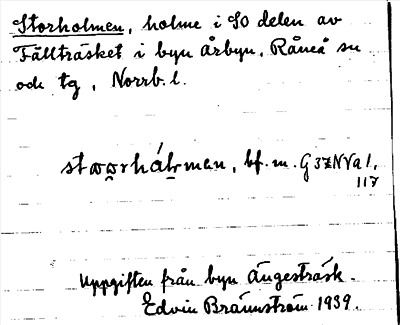 Storholmen, holme i SO delen av
Fällträsket i byn Årbyn. Råneå sn
och tg, Norrb. l.
bf. m. G37NVa1,
117
Uppgiften från byn Ängesträsk.
Edvin Brännström 1939.